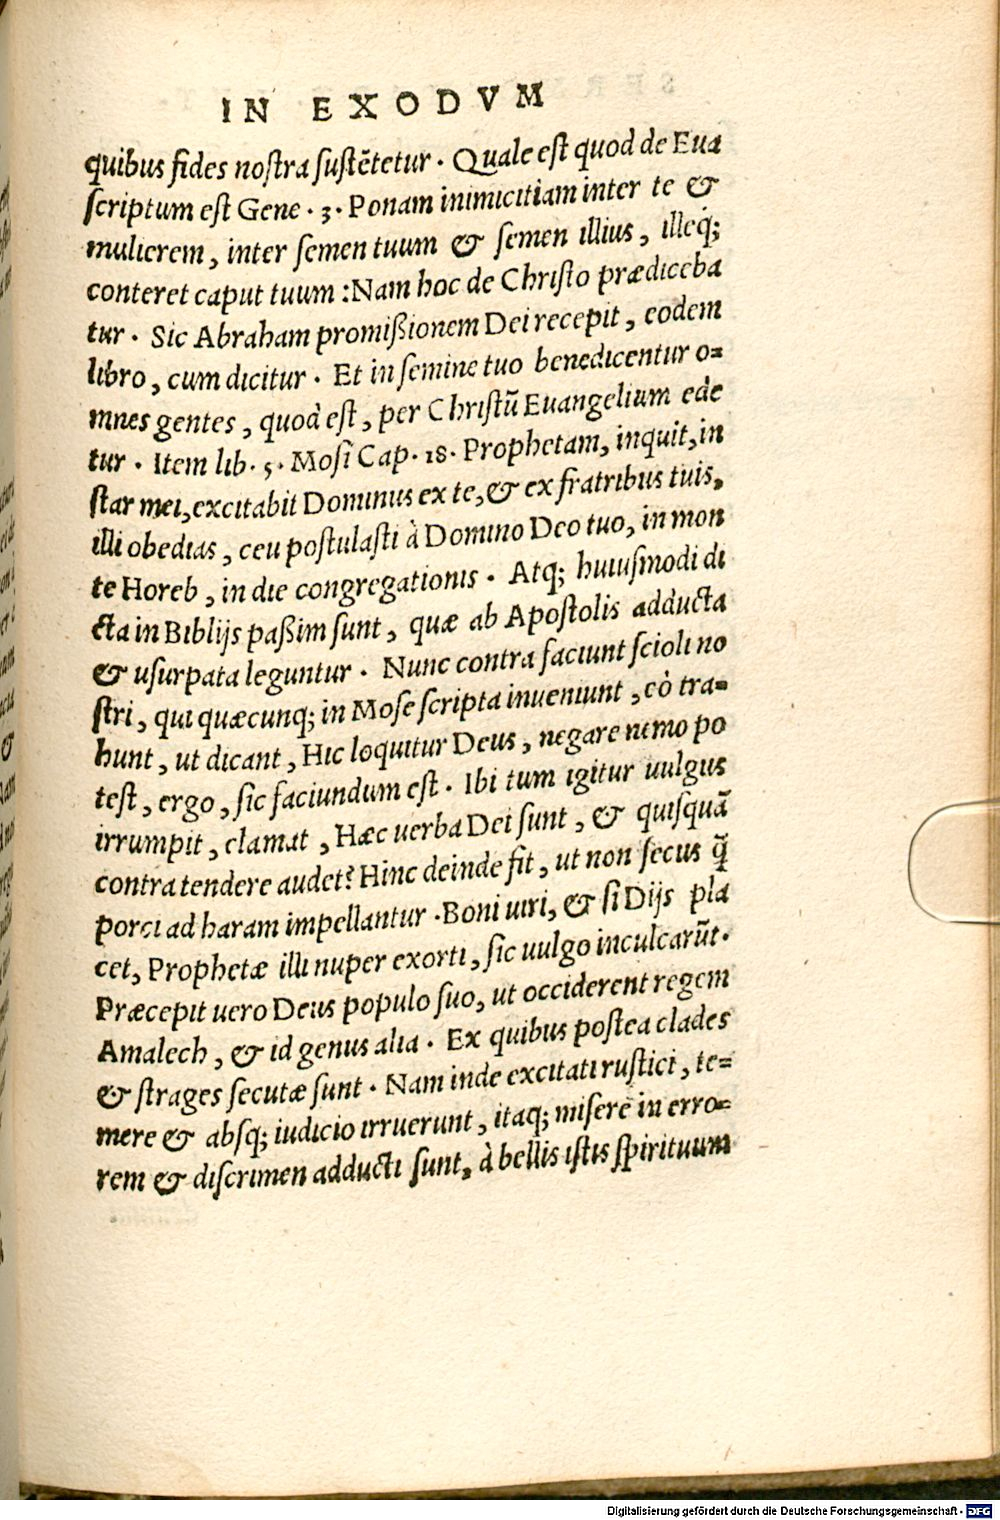 IN EXODVM
quibus fides nostra sustētetur. Quale est quod de Eua
scriptum est Gene. 3. Ponam inimicitiam inter te &
mulierem, inter semen tuum & semen illius, illeq;
conteret caput tuum: Nam hoc de Christo prædiceba
tur. Sic Abraham promißionem Dei recepit, eodem
libro, cum dicitur. Et in semine tuo benedicentur o=
mnes gentes, quod est, per Christū Euangelium ede
tur. Item lib. 5. Mosi Cap. 18. Prophetam, inquit, in
star mei, excitabit Dominus ex te, & ex fratribus tuis,
illi obedias, ceu postulasti à Domino Deo tuo, in mon
te Horeb, in die congregationis. Atq; huiusmodi di
cta in Biblijs paßim sunt, quæ ab Apostolis adducta
& usurpata leguntur. Nunc contra faciunt scioli no
stri, qui quæcunq; in Mose scripta inueniunt, eò tra=
hunt, ut dicant, Hic loquitur Deus, negare nemo po
test, ergo, sic faciundum est. Ibi tum igitur uulgus
irrumpit, clamat, Hæc uerba Dei sunt, & quisquā
contra tendere audet? Hinc deinde fit, ut non secus q̃
porci ad haram impellantur. Boni uiri, & si Dijs pla
cet, Prophetæ illi nuper exorti, sic uulgo inculcarūt.
Præcepit uero Deus populo suo, ut occiderent regem
Amalech, & id genus alia. Ex quibus postea clades
& strages secutæ sunt. Nam inde excitati rustici, te=
mere & absq; iudicio irruerunt, itaq; misere in erro=
rem & discrimen adducti sunt, à bellis istis spirituum
Digitalisierung gefördert durch die Deutsche Forschungsgemeinschaft - DFG